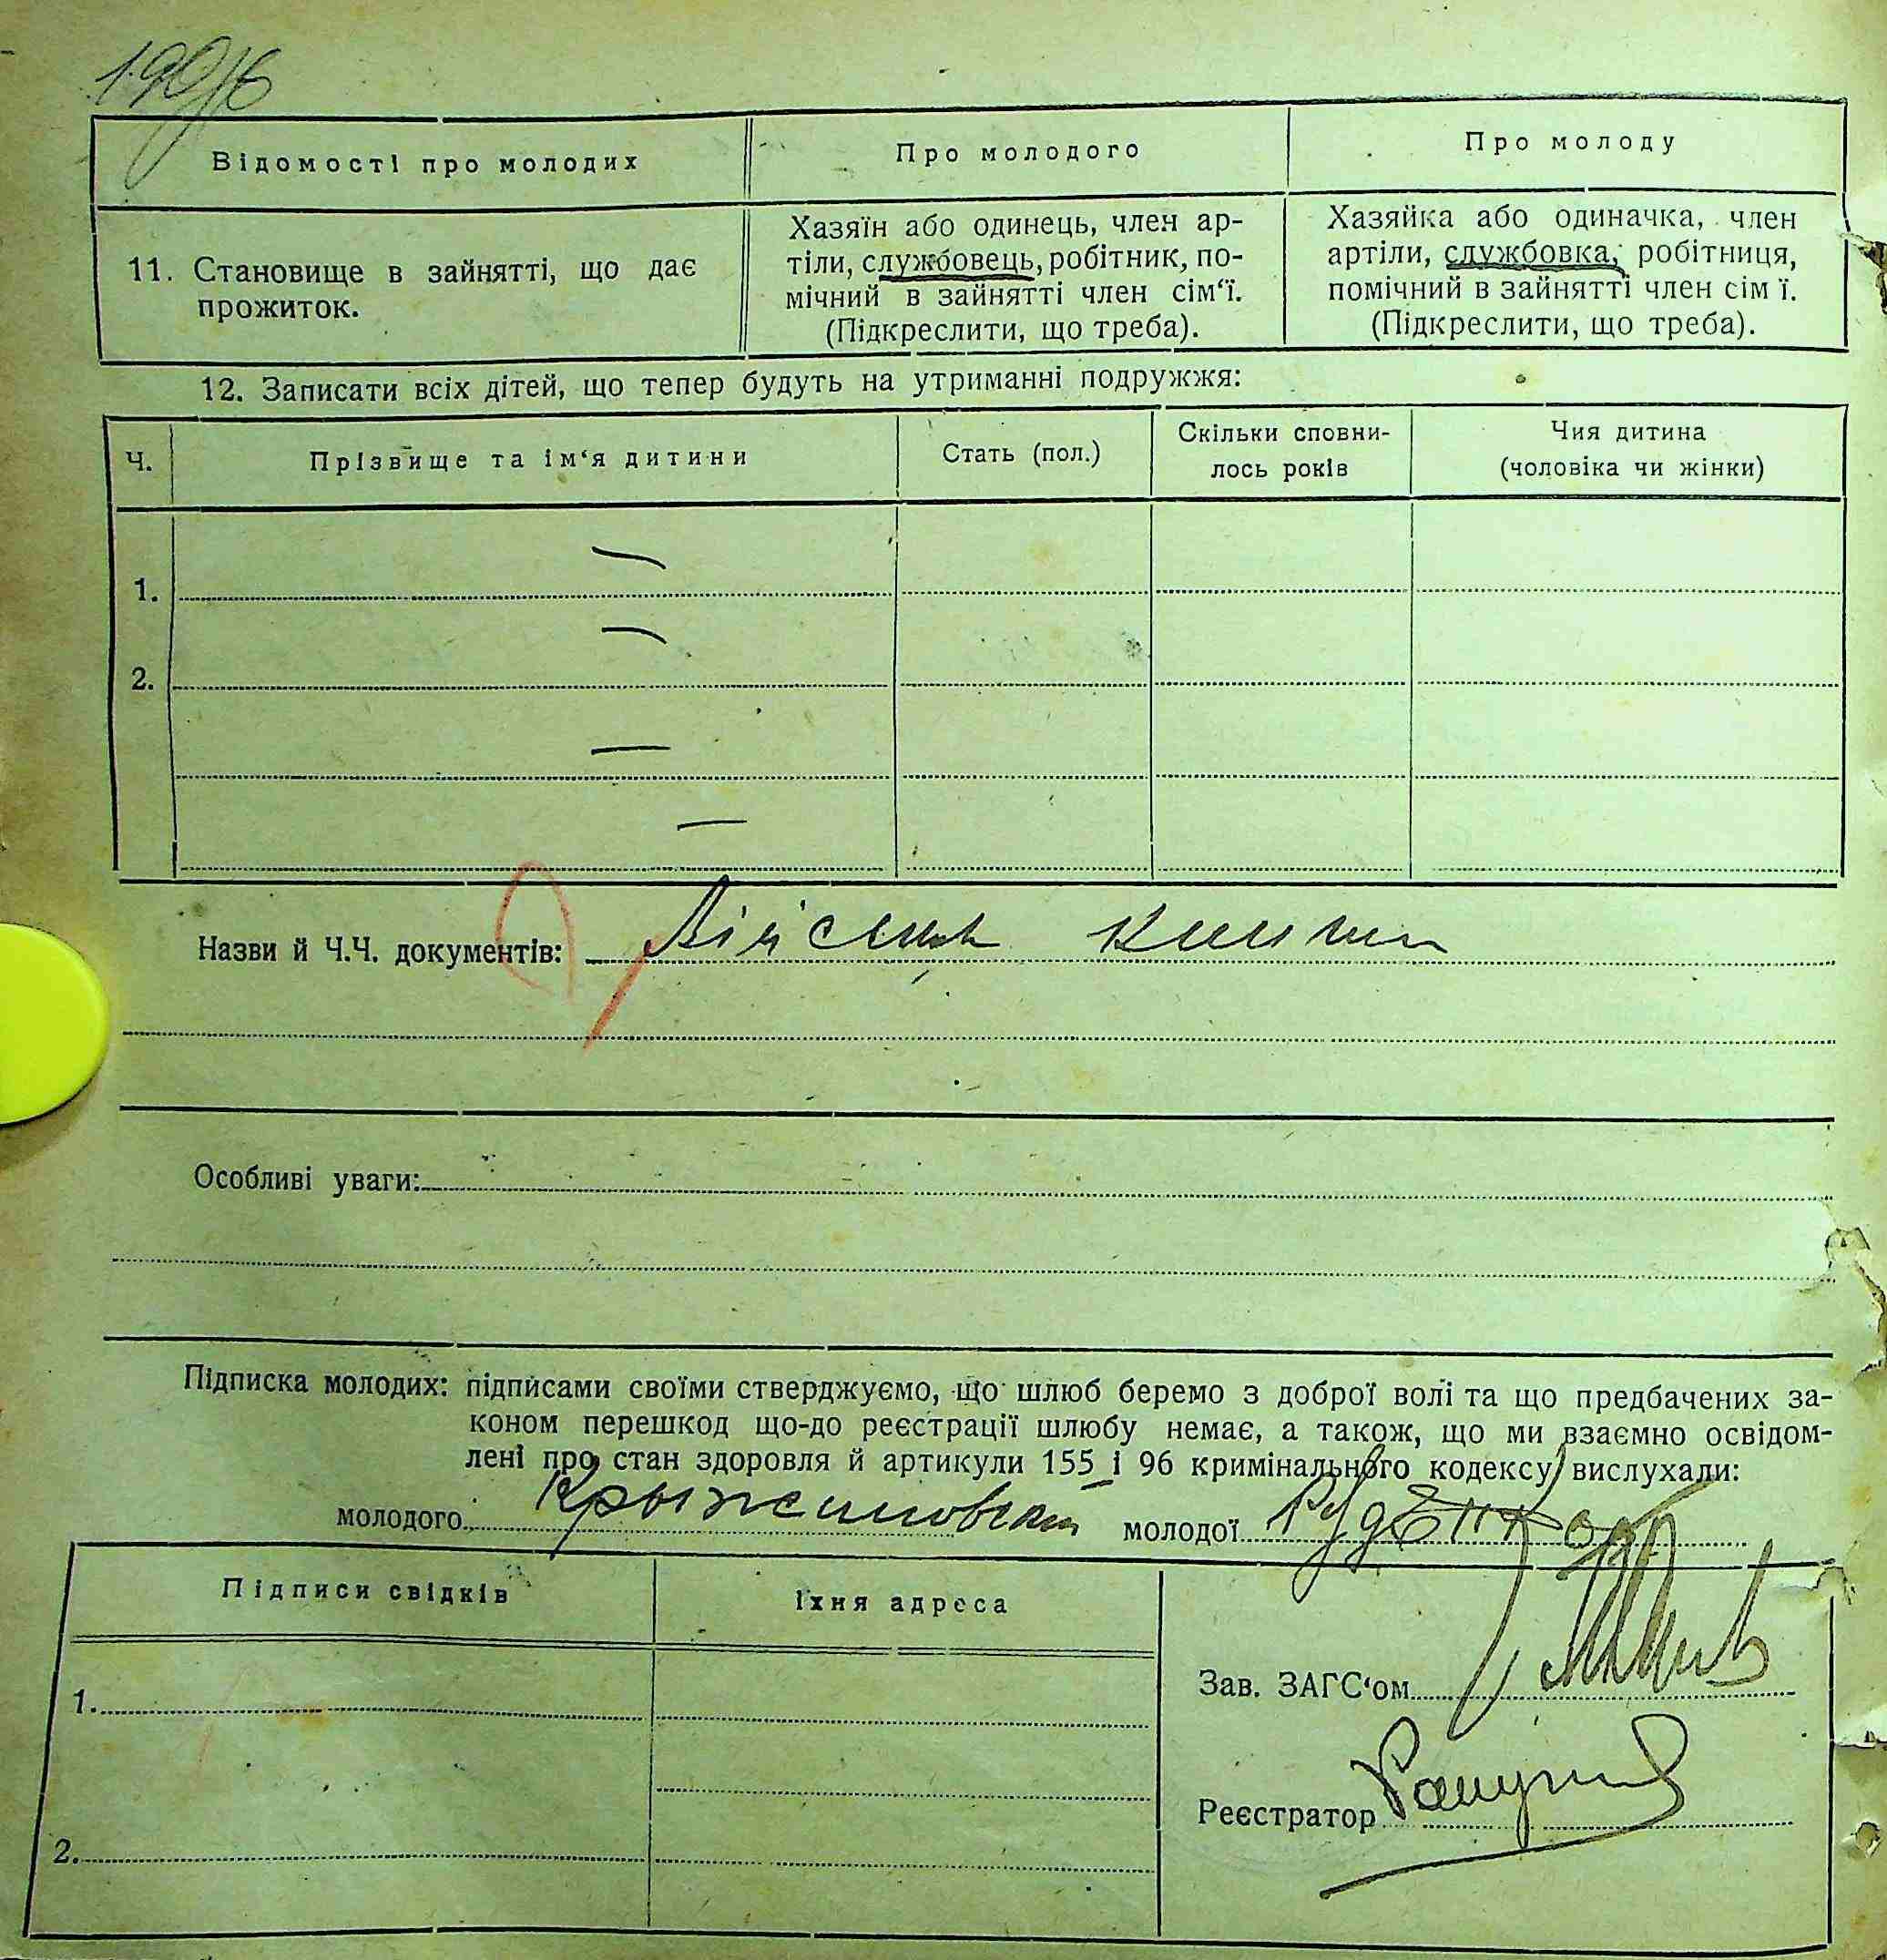 Відомості про молодих
Про молодого
Про молоду
11. Становище в зайнятті, що дає
прожиток.
Хазяїн або одинець, член ар-
тіли, службовець, робітник, по-
мічний в зайнятті член сім‘ї.
(Підкреслити, що треба).
Хазяйка або одиначка, член
артіли, службовка, робітниця,
помічний в зайнятті член сім ї.
(Підкреслити, що треба).
12. Записати всіх дітей, що тепер будуть на утриманні подружжя:
Ч.
Прізвище та ім‘я дитини
Стать (пол.)
Скільки сповни-
лось років
Чия дитина
(чоловіка чи жінки)
1.
2.
Назви й Ч.Ч. документів:
Особливі уваги:
Підписка молодих: підписами своїми стверджуємо, що шлюб беремо з доброї волі та що предбачених за-
коном перешкод що-до реєстрації шлюбу немає, а також, що ми взаємно освідом-
лені про стан здоровля й артикули 155 і 96 кримінального кодексу вислухали:
молодого Крыжановский молодої
Підписи свідків
Їхня адреса
1.
2.
Зав. ЗАГС‘ом
Реєстратор